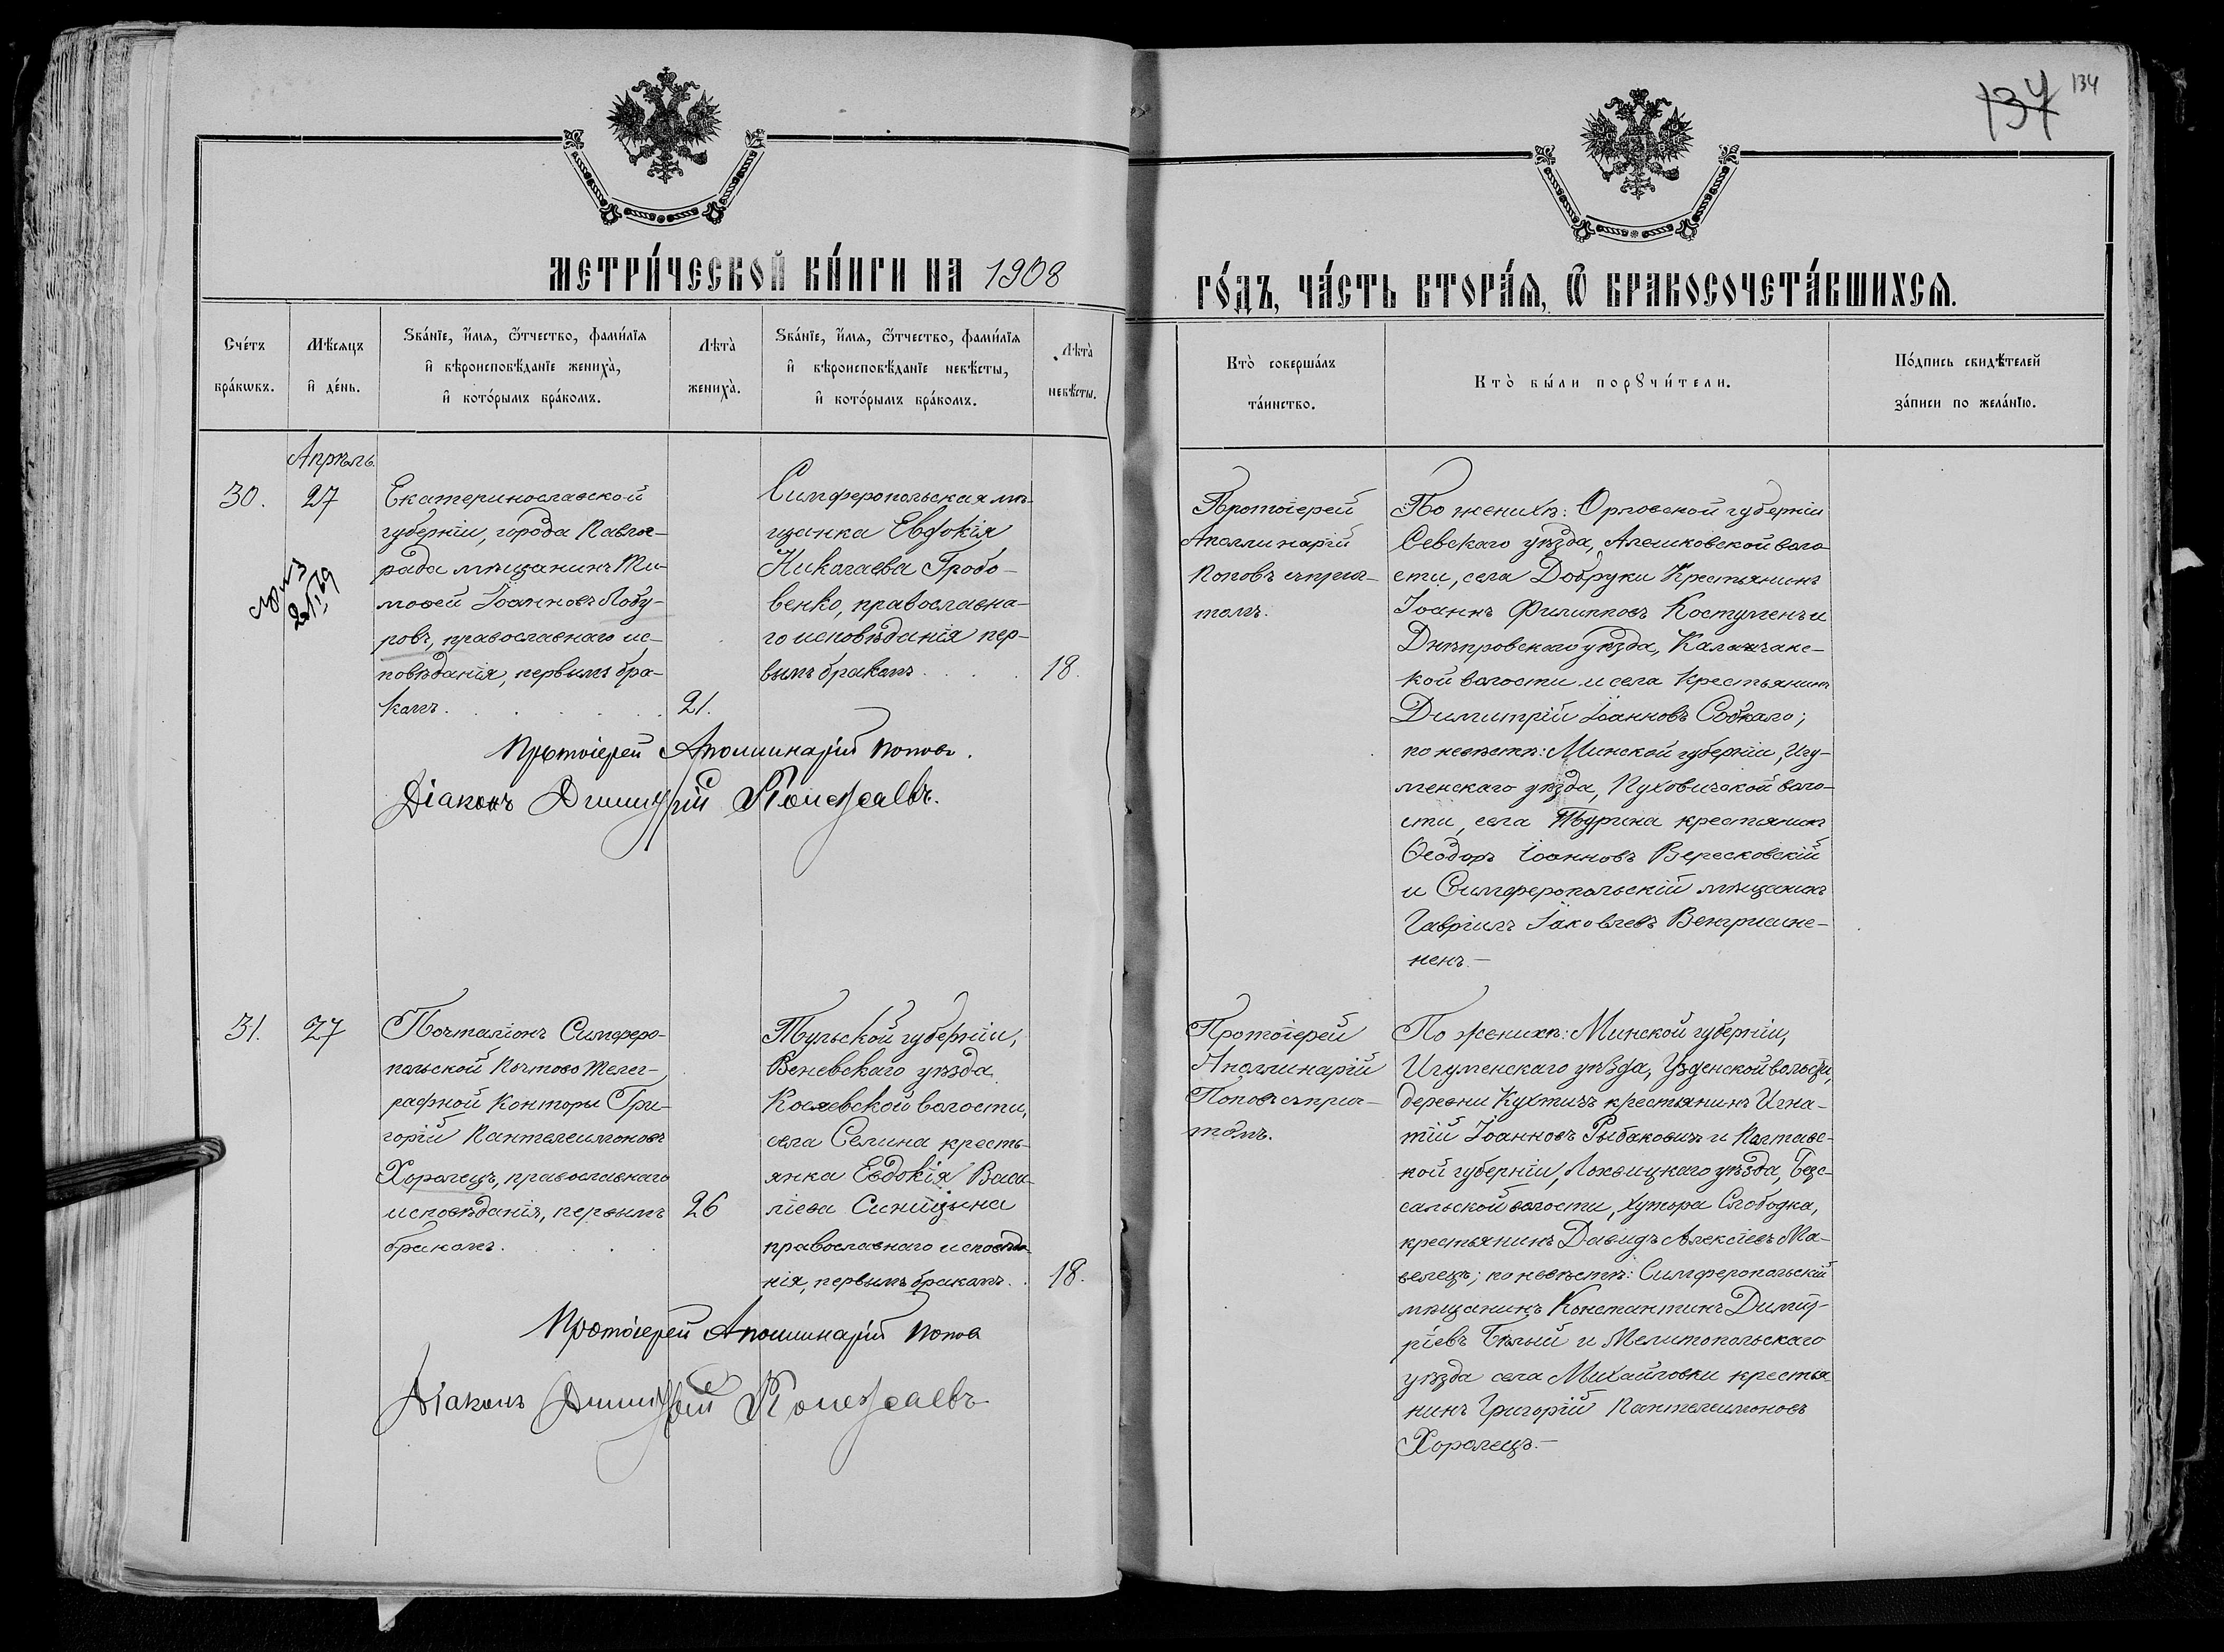 134
134
МЕТРИ́ЧЕСКОЙ КНИ́ГИ НА 1908
ГО́ДЪ, ЧА́СТЬ ВТОРА́Я, Ѿ БРАКОСОЧЕТА́ВШИХСЯ.
Сче́тъ
бра́кѡвъ.
Мѣ́сяцъ
и҆ де́нь.
Ѕва́нїе, и҆́мя, ѻ҆́тчество, фами́лїя
и҆ вѣроисповѣ́данїе жениха̀,
и҆ кото́рымъ бра́комъ.
Лѣта̀
жениха̀.
Ѕва́нїе, и҆́мя, ѻ҆́тчество, фами́лїя
и҆ вѣроисповѣ́данїе невѣ́сты,
и҆ кото́рымъ бра́комъ.
Лѣта̀
невѣ́сты.
Кто̀ соверша́лъ
та́инство.
Кто̀ бы́ли порꙋчи́тели.
По́дпись свидѣ́телей
за́писи по жела́нїю.
Апрѣль
30.
27
Екатеринославской
губерніи, города Павлог-
рада мѣщанинъ Ти-
моѳей Іоанновъ Лобу-
ровъ, православнаго ис-
повѣданія, первымъ бра-
комъ.
21.
Симферопольская мѣ-
щанка Евдокія
Николаева Гробо-
венко, православна-
го исповѣданія пер-
вымъ бракомъ
18.
Протоіерей Аполлинарій Попов.
Діаконъ Димитрій
Протоіерей
Аполлинарій
Поповъ съ прич-
томъ.
По женихѣ: Орловской губерніи
Севскаго уѣзда, Алешковской воло-
сти, села Добруки Крестьянинъ
Іоаннъ Филипповъ Костуменъ и
Днѣпровскаго уѣзда, Каланчакс-
кой волости и села Крестьянинъ
Димитрій Іоанновъ Собкало;
по невѣстѣ: Минской губерніи, Игу-
менскаго уѣзда, Пуховичской воло-
сти, села Турина крестьянинъ
Ѳеодоръ Іоанновъ Вересковскій
и Симферопольскій мѣщанинъ
Гавріилъ Іаковлевъ
ненъ.—
31.
27
Почталіонъ Симферо-
польской Почтово Телег-
рафной Конторы Гри-
горій Пантелеимоновъ
Хоролецъ, православнаго
исповѣданія, первымъ
бракомъ.
26
Тульской губерніи,
Веневскаго уѣзда
волости,
села Селина кресть-
янка Евдокія Васи-
ліева Синицына
православнаго исповѣда-
нія, первымъ бракомъ.
18.
Протоіерей Аполлинарій Попов
Діаконъ Димитрій
Протоіерей
Аполлинарій
Поповъ съ прич-
томъ.
По женихѣ: Минской губерніи,
Игуменскаго уѣзда, Узденской волости,
деревни Кухтичъ крестьянинъ Игна-
тій Іоанновъ Рыбаковичъ и Полтавс-
кой губерніи, Лохвицкаго уѣзда, Безс-
сальской волости, хутора Слободка,
крестьянинъ Давидъ Алексіевъ Ма-
велецъ; по невѣстѣ: Симферопольскій
мѣщанинъ Константинъ Димит-
ріевъ Бѣлый и Мелитопольскаго
уѣзда села Михайловки крестья-
нинъ Григорій Пантелеимоновъ
Хоролецъ.—